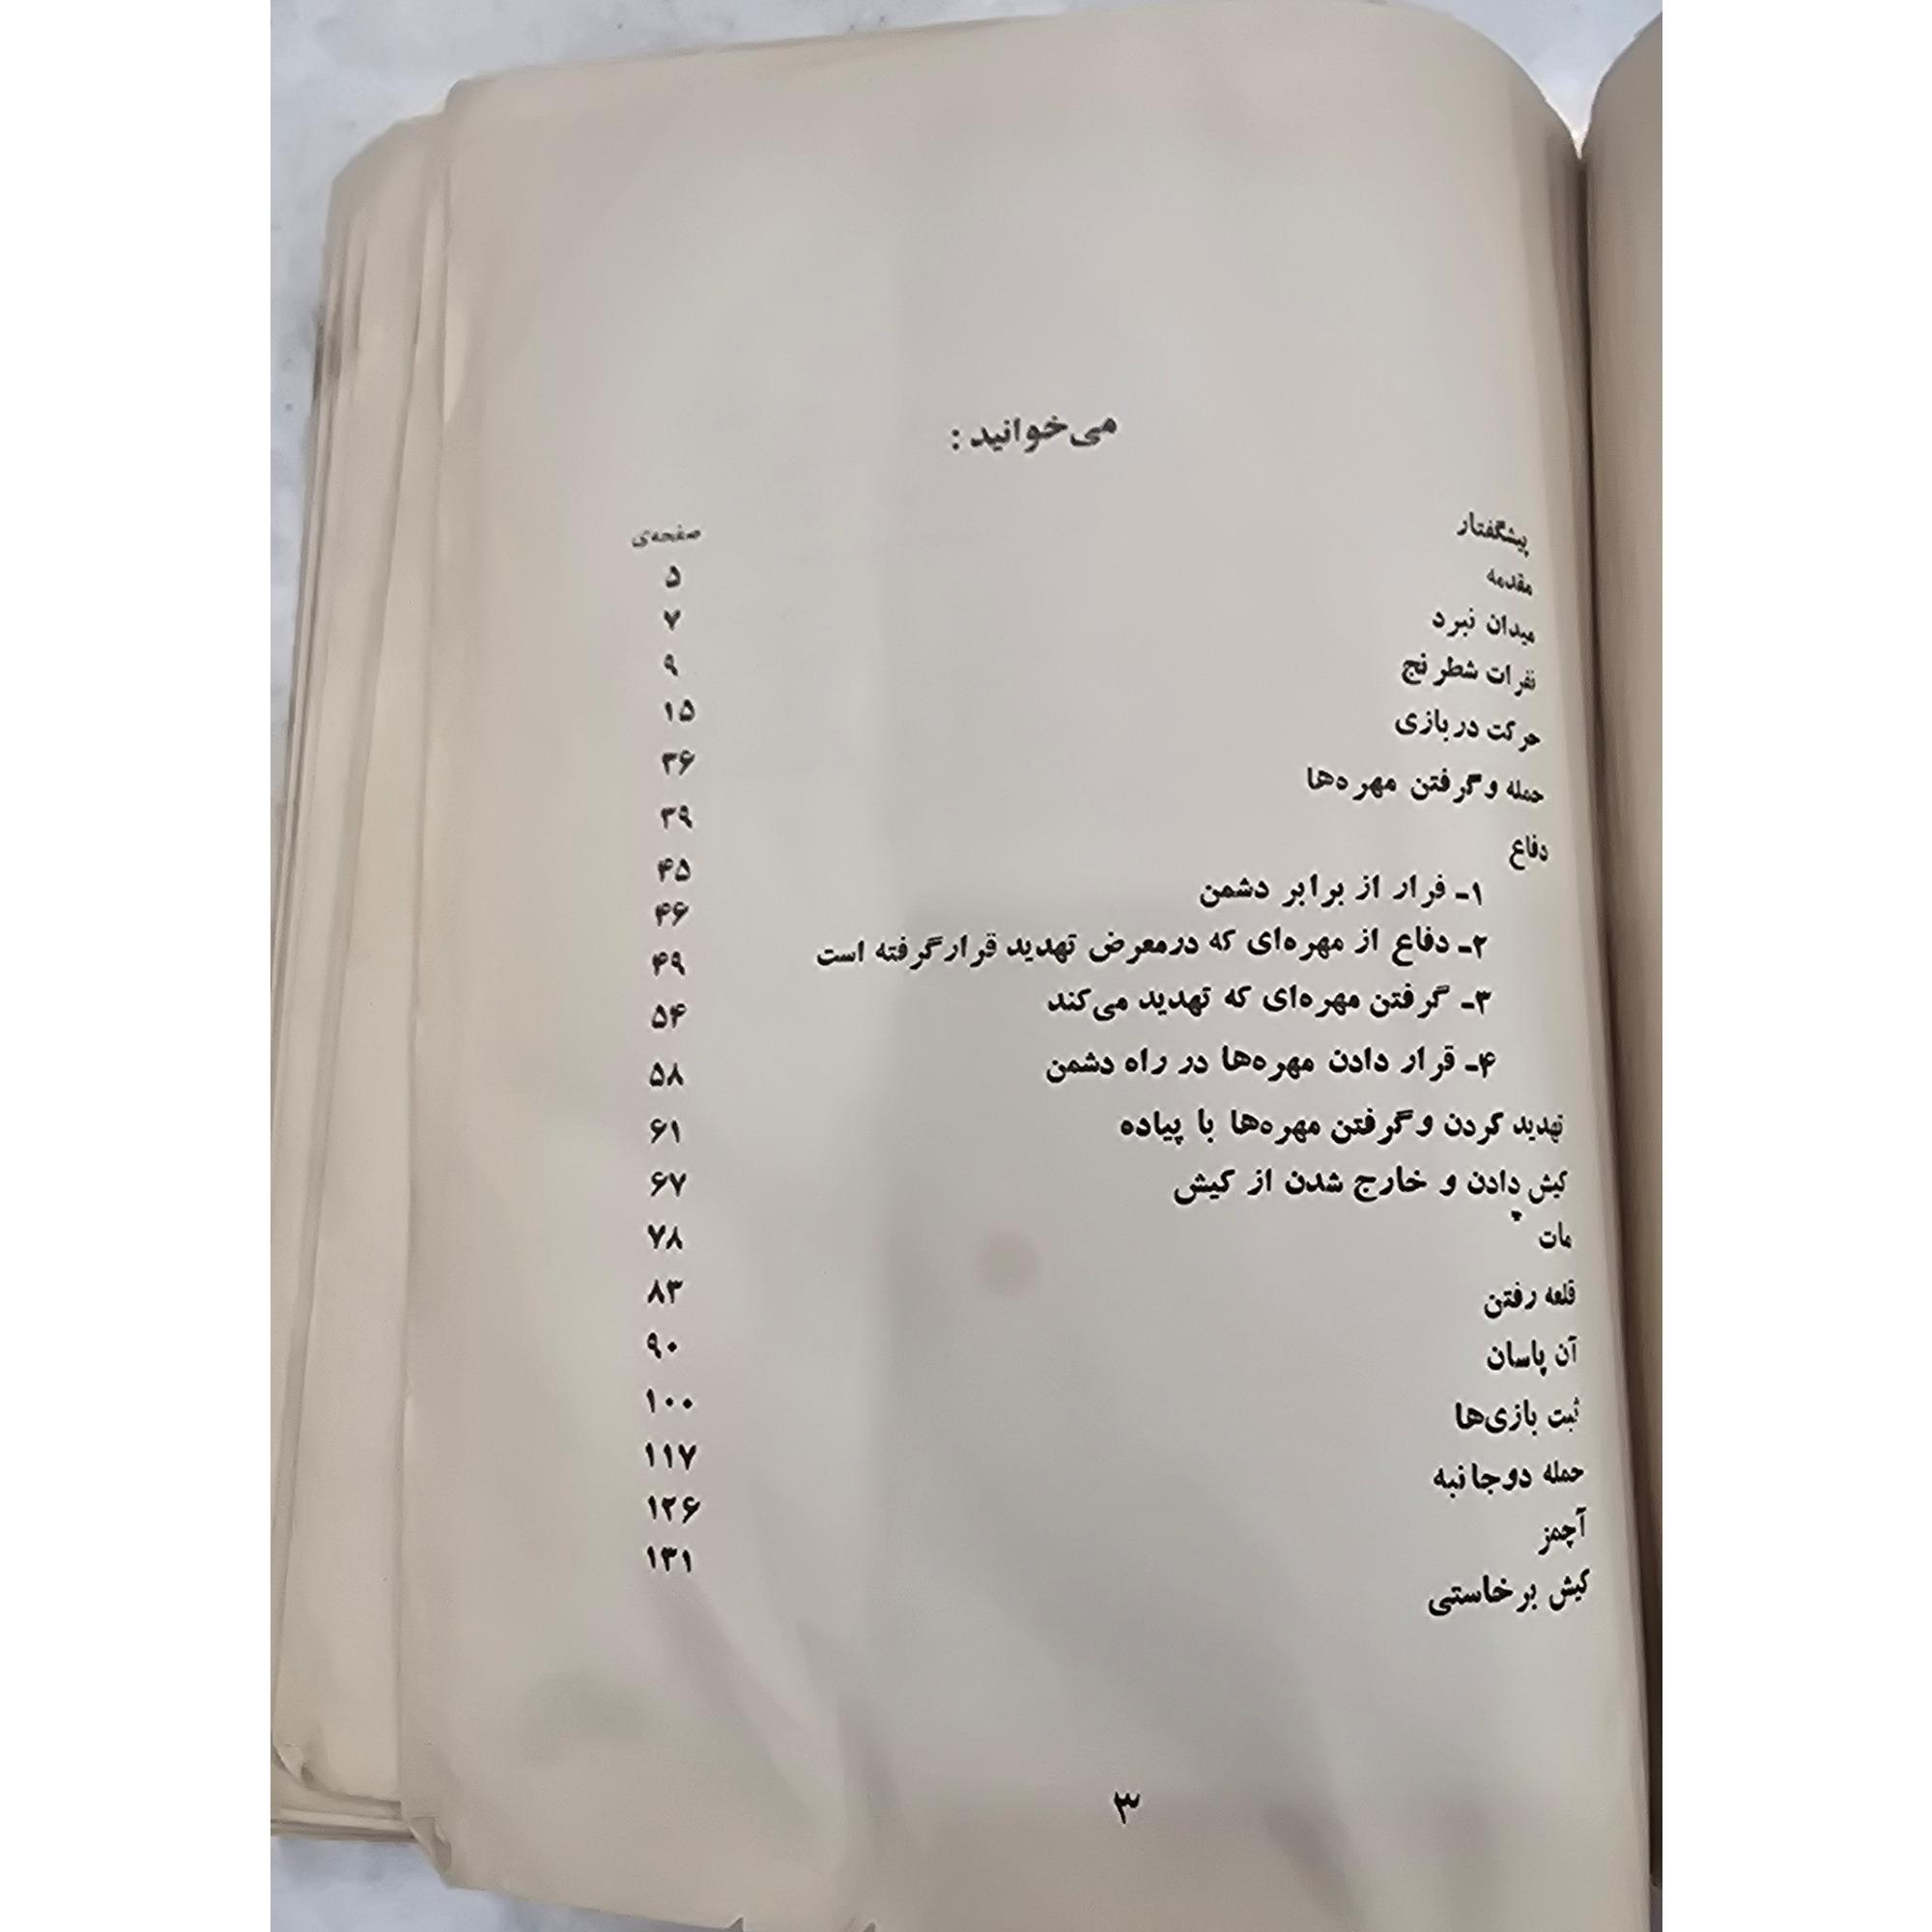 می‌خوانید :
صفحه‌ی
پیشگفتار ۵
مقدمه ۷
میدان نبرد ۹
نفرات شطرنج ۱۵
حرکت در بازی ۳۶
حمله و گرفتن مهره‌ها ۳۹
دفاع ۴۵
۱ـ فرار از برابر دشمن ۴۶
۲ـ دفاع از مهره‌ای که در معرض تهدید قرار گرفته است ۴۹
۳ـ گرفتن مهره‌ای که تهدید می‌کند ۵۴
۴ـ قرار دادن مهره‌ها در راه دشمن ۵۸
تهدید کردن و گرفتن مهره‌ها با پیاده ۶۱
کیش دادن و خارج شدن از کیش ۶۷
مات ۷۸
قلعه رفتن ۸۳
آن پاسان ۹۰
ثبت بازی‌ها ۱۰۰
حمله دوجانبه ۱۱۷
آچمز ۱۲۶
کیش برخاستی ۱۳۱
۳